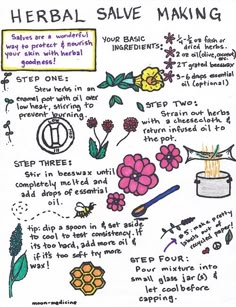 HERBAL SALVE MAKING
Salves are a wonderful
way to protect & nourish
your skin with herbal
goodness!
YOUR BASIC
INGREDIENTS:
fresh or
dried herbs.
2 oz oil (olive, coconut etc.
2T grated beeswax
5-6 drops essential
oil (optional)
STEP ONE:
Stew herbs in an
enamel pot with oil over
low heat, stirring to
prevent burning.
STEP TWO:
Strain out herbs
with a cheesecloth &
return infused oil to
the pot.
STEP THREE:
Stir in beeswax until
completely melted and
add drops of essential
oil.
tip: dip a spoon in & set aside
to cool to test consistency. If
its too hard, add more oil &
if it's too soft try more
wax!
P.S. make pretty
labels out of
recycled paper!
STEP FOUR:
Pour mixture into
small glass jar(s) &
let cool before
capping.